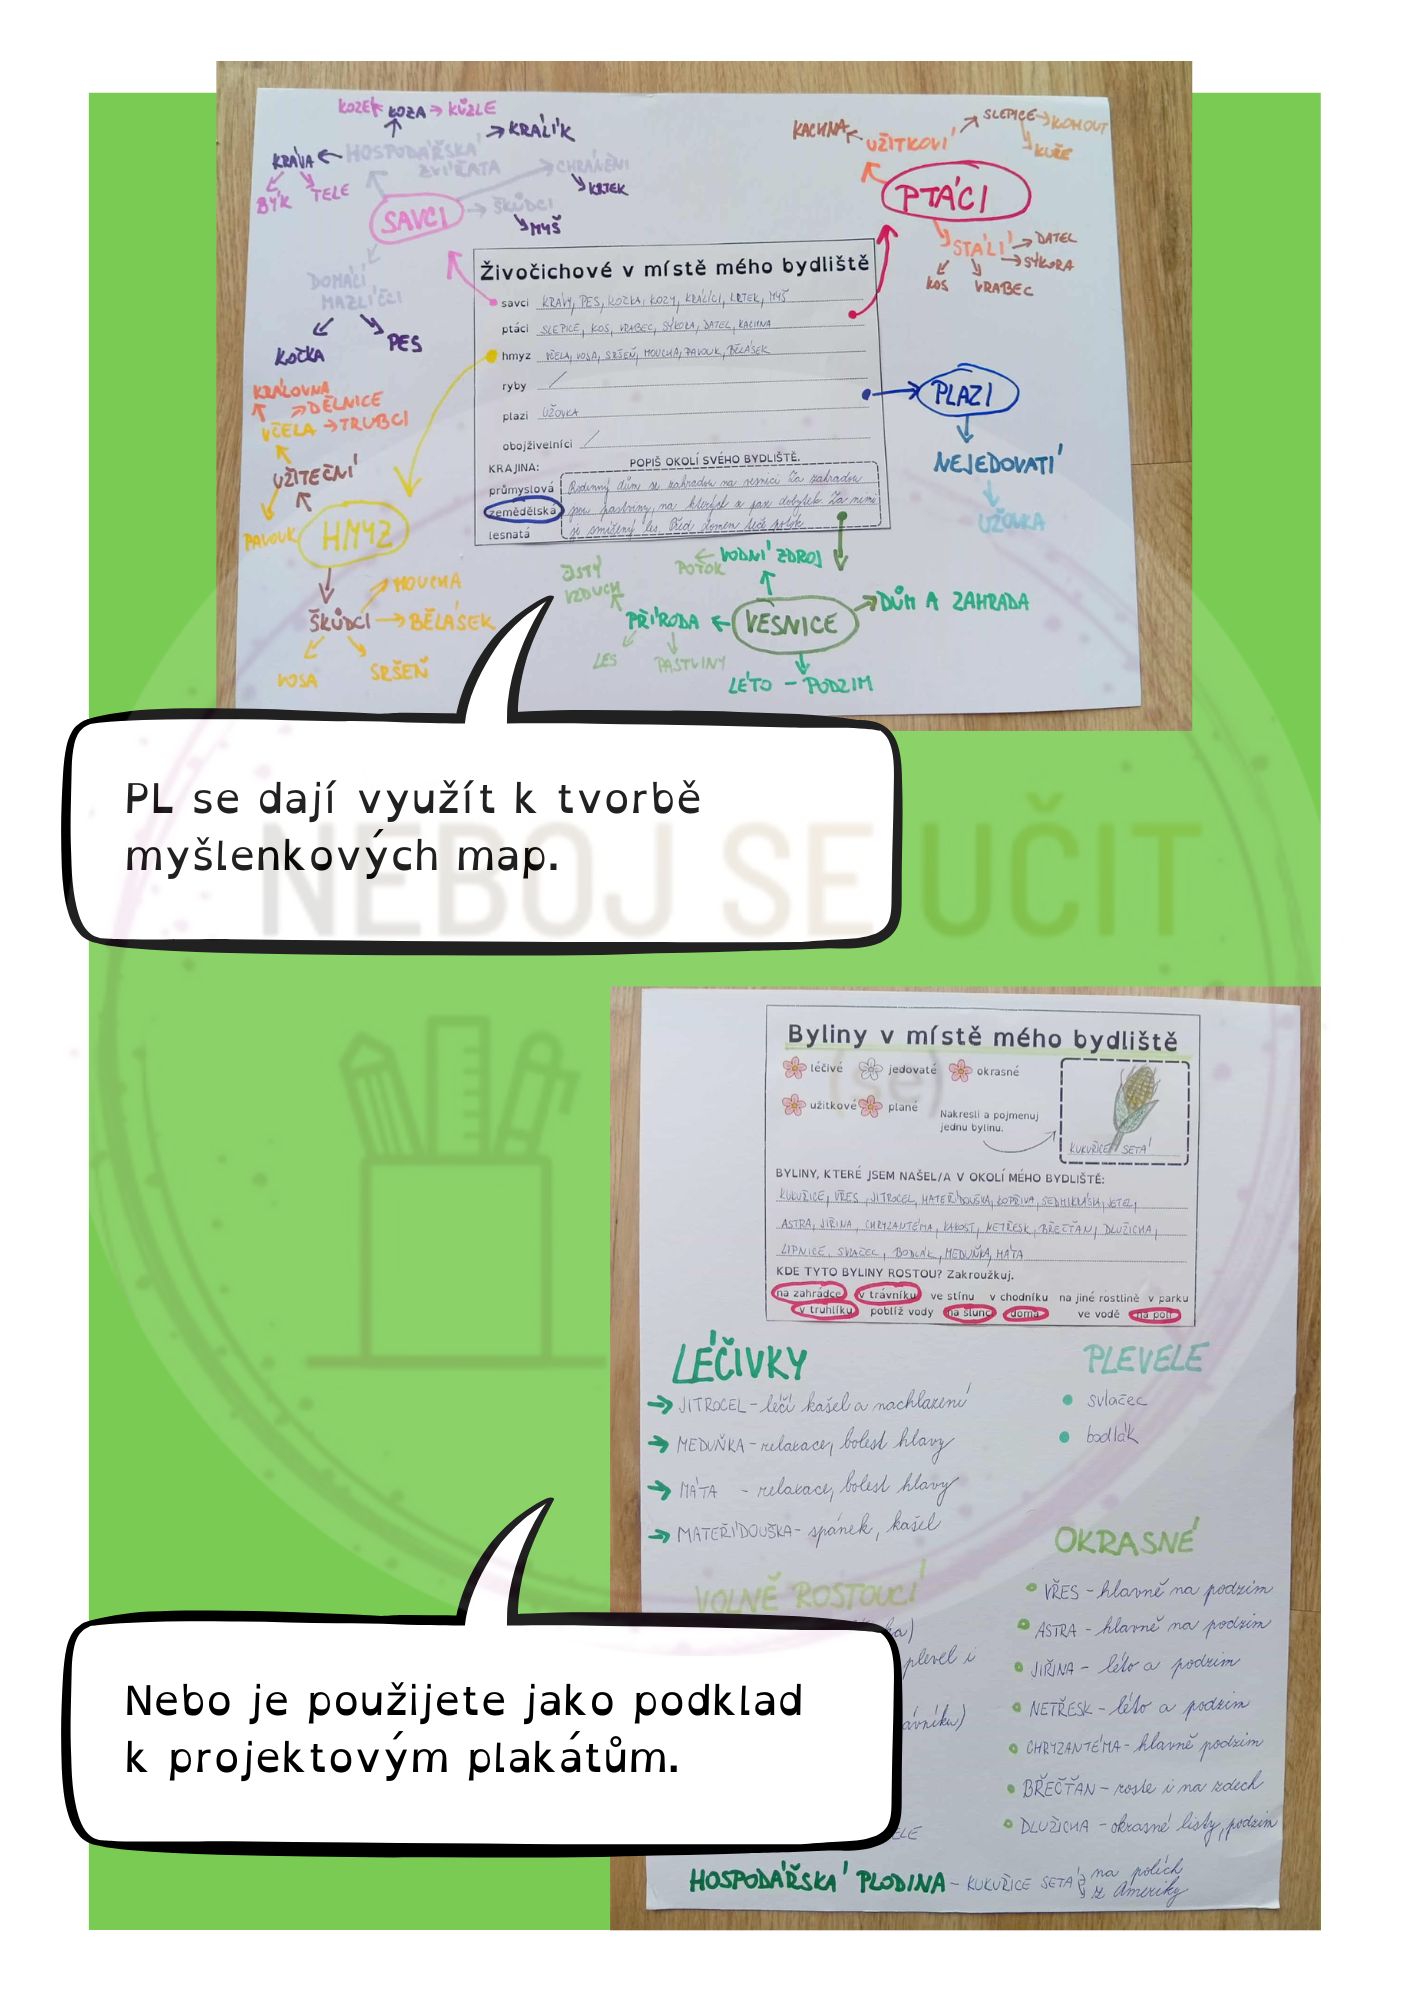 KOZEL KOZA KŮZLE
KRÁLÍK
KRÁVA HOSPODÁŘSKÁ
ZVÍŘATA
BÝK TELE
CHRÁNĚNÍ
KRTEK
SAVCI ŠKŮDCI
MYŠ
DOMÁCÍ
MAZLÍČCI
KOČKA PES
KACHNA UŽITKOVÍ SLEPICE KOHOUT
KUŘE
PTÁCI
STÁLÍ DATEL
SÝKORA
KOS VRABEC
Živočichové v místě mého bydliště
savci KRÁVY, PES, KOČKA, KOZY, KRÁLÍCI, KRTEK, MYŠ
ptáci SLEPICE, KOS, VRABEC, SÝKORA, DATEL, KACHNA
hmyz VČELA, VOSA, SRŠEŇ, MOUCHA, PAVOUK, BĚLÁSEK
ryby /
plazi UŽOVKA
obojživelníci /
KRAJINA: POPIŠ OKOLÍ SVÉHO BYDLIŠTĚ.
průmyslová Rodinný dům se zahradou na vesnici. Za zahradou
zemědělská jsou pastviny, na kterých se pase dobytek. Za nimi
lesnatá je smíšený les. Před domem teče potok.
KRÁLOVNA
DĚLNICE
VČELA TRUBCI
UŽITEČNÍ
PAVOUK HMYZ
MOUCHA
ŠKŮDCI BĚLÁSEK
VOSA SRŠEŇ
PLAZI
NEJEDOVATÍ
UŽOVKA
POTOK VODNÍ ZDROJ
ČISTÝ
VZDUCH
PŘÍRODA VESNICE DŮM A ZAHRADA
LES PASTVINY
LÉTO - PODZIM
PL se dají využít k tvorbě
myšlenkových map.
NEBOJ SE UČIT
(se)
Byliny v místě mého bydliště
léčivé jedovaté okrasné
užitkové plané
Nakresli a pojmenuj
jednu bylinu.
KUKUŘICE SETÁ
BYLINY, KTERÉ JSEM NAŠEL/A V OKOLÍ MÉHO BYDLIŠTĚ:
KUKUŘICE, VŘES, JITROCEL, MATEŘÍDOUŠKA, KOPŘIVA, SEDMIKRÁSKA, JETEL,
ASTRA, JIŘINA, CHRYZANTÉMA, KAKOST, NETŘESK, BŘEČŤAN, DLUŽICHA,
LIPNICE, SVLAČEC, BODLÁK, MEDUŇKA, MÁTA
KDE TYTO BYLINY ROSTOU? Zakroužkuj.
na zahrádce v trávníku ve stínu v chodníku na jiné rostlině v parku
v truhlíku poblíž vody na slunci doma ve vodě na poli
LÉČIVKY
JITROCEL - léčí kašel a nachlazení
MEDUŇKA - relaxace, bolest hlavy
MÁTA - relaxace, bolest hlavy
MATEŘÍDOUŠKA - spánek, kašel
PLEVELE
svlačec
bodlák
VOLNĚ ROSTOUCÍ
plevel i
OKRASNÉ
VŘES - hlavně na podzim
ASTRA - hlavně na podzim
JIŘINA - léto a podzim
NETŘESK - léto a podzim
CHRYZANTÉMA - hlavně podzim
BŘEČŤAN - roste i na zdech
DLUŽICHA - okrasné listy, podzim
Nebo je použijete jako podklad
k projektovým plakátům.
HOSPODÁŘSKÁ PLODINA - KUKUŘICE SETÁ na polích
z Ameriky